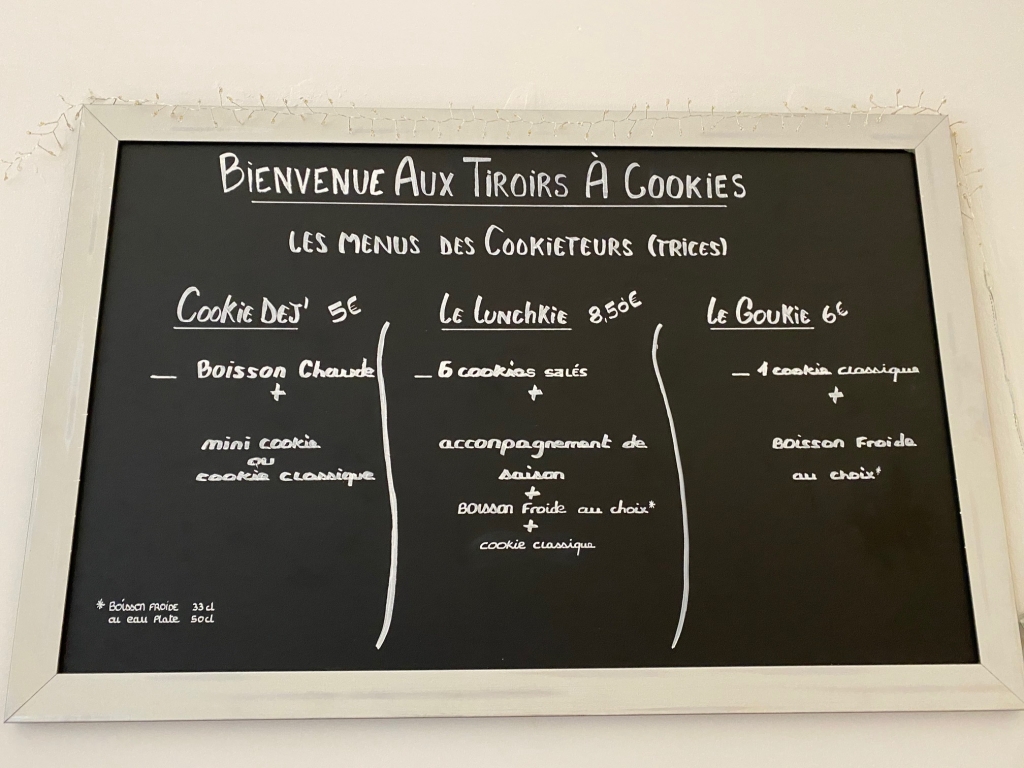 BIENVENUE AUX TIROIRS À COOKIES
LES MENUS DES COOKIETEURS (TRICES)
COOKIE DEJ' 5€
_ Boisson Chaude
+
mini cookie
ou
cookie classique
LE LUNCHKIE 8,50€
_ 5 cookies SALÉS
+
acconpagnement de
saison
+
BOISSON Froide au choix*
+
cookie classique
LE GOUKIE 6€
_ 1 cookie classique
+
BOISSON Froide
au choix*
* BOISSON FROIDE 33cl
ou eau Plate 50cl